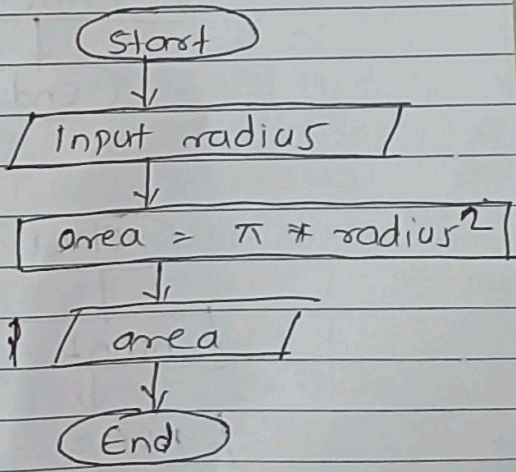 Start
Input radius
area = π * radius²
area
End